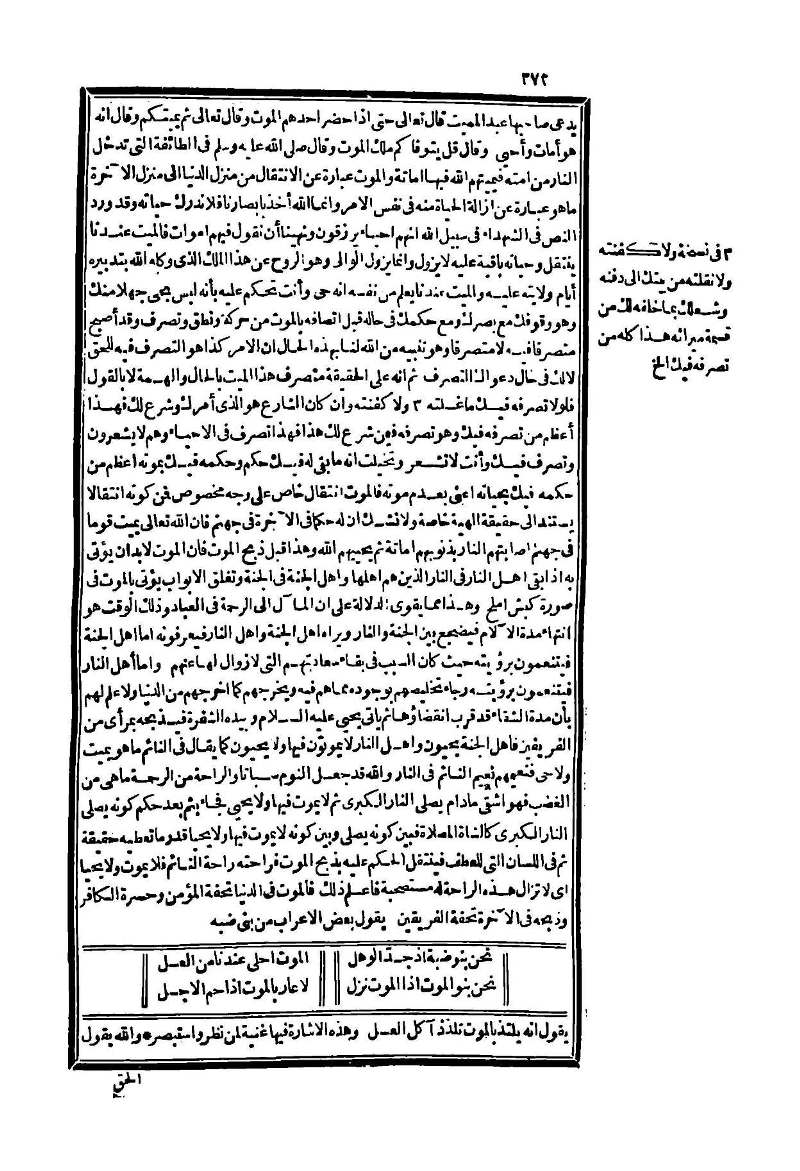 ٣٧٢
يدعى صاحبها عبد المميت قال تعالى حتى اذا حضر احدهم الموت وقال تعالى ثم يميتكم وقال انه
هو أمات وأحيى وقال قل يتوفاكم ملك الموت وقال صلى الله عليه وسلم فى الطائفة التى تدخل
النار من امته فيميتهم الله فيها اماتة والموت عبارة عن الانتقال من منزل الدنيا الى منزل الآخرة
ما هو عبارة عن ازالة الحياة منه فى نفس الامر وانما الله أخذ بابصارنا فلا ندرك حياته وقد ورد
النص فى الشهداء فى سبيل الله انهم احياء يرزقون ونهينا أن نقول فيهم اموات فالميت عندنا
ينتقل وحياته باقية عليه لا يزول وانما يزول الوالى وهو الروح عن هذا الملك الذى وكله الله بتدبيره
أيام ولايته عليه والميت عندنا يعلم من نفسه انه حى وأنت تحكم عليه بأنه ليس بحى جهلا منك
وهو وقوفك مع بصرك ومع حكمك فى حاله قبل اتصافه بالموت من حركة ونطق وتصرف وقد أصبح
متصرفا فيه لا متصرفا وهو تنبيه من الله لنا بهذه الحال ان الامر كذا هو التصرف فيه للحق
لا لك فى حال دعواك التصرف ثم انه على الحقيقة متصرف هذا الميت بالحال والهمة لا بالقول
فلولا تصرفه فيك ما غسلته ٣ ولا كفنته وان كان الشارع هو الذى أمرك وشرع لك فهذا
أعظم من تصرفه فيك وهو تصرفه فيمن شرع لك هذا فهذا تصرف فى الاحياء وهم لا يشعرون
وتصرف فيك وأنت لا تشعر وتخيلت انه ما بقى له فيك حكم وحكمه فيك بموته اعظم من
حكمه فيك بحياته اعنى بعدم موته فالموت انتقال خاص على وجه مخصوص فمن كونه انتقالا
يستند الى حقيقة الهية خاصة ولا نشك ان له حكما فى الآخرة فى جهنم فان الله تعالى يميت قوما
فى جهنم اصابتهم النار بذنوبهم اماتة ثم يحييهم الله وهذا قبل ذبح الموت فان الموت لابد ان يؤتى
به اذا بقى اهل النار فى النار الذين هم اهلها واهل الجنة فى الجنة وتغلق الابواب يؤتى بالموت فى
صورة كبش املح وهذا مما يقوى الدلالة على ان المآل الى الرحمة فى العباد وذلك الوقت هو
انتهاء مدة الآلام فيضجع بين الجنة والنار ويراه اهل الجنة واهل النار فيعرفونه اما اهل الجنة
فيتنعمون برؤيته حيث كان السبب فى بقاء سعادتهم التى لا زوال لها عنهم واما أهل النار
فيتنعمون برؤيته رجاء تخليصهم بوجوده مما هم فيه ويخرجهم كما اخرجهم من الدنيا ولا علم لهم
بأن مدة الشقاء قد قرب انقضاؤها ثم يأتى يحيى عليه السلام وبيده الشفرة فيذبحه بمرأى من
الفريقين فاهل الجنة يحيون واهل النار لا يموتون فيها ولا يحيون كما يقال فى النائم ما هو بميت
ولا حى فنعيمهم نعيم النائم فى النار والله قد جعل النوم سباتا والراحة من الرحمة ما هى من
الغضب فهو اشقى مادام يصلى النار الكبرى ثم لا يموت فيها ولا يحيى فجاء بثم بعد حكم كونه يصلى
النار الكبرى كالشاة المصلاة فبين كونه يصلى وبين كونه لا يموت فيها ولا يحيا قدر ما تعطيه حقيقة
ثم فى اللسان التى للعطف فينتقل الحكم عليه بذبح الموت فراحته راحة النائم فلا يموت ولا يحيا
اى لا تزال هذه الراحة له مستصحبة فاعلم ذلك فالموت فى الدنيا تحفة المؤمن وحسرة الكافر
وذبحه فى الآخرة تحفة الفريقين يقول بعض الاعراب من بنى ضبه
نحن بنو ضبة اذ جد الوهل الموت احلى عندنا من العسل
نحن بنو الموت اذا الموت نزل لا عار بالموت اذا حم الاجل
يقول انه يلتذ بالموت تلذذ آكل العسل وهذه الاشارة فيها غنية لمن نظر واستبصر والله يقول
الحق
٣ فى نسخة ولا كفنته
ولا نقلته من بيتك الى دفنه
وشغلك بما خلفه لك من
قسمة ميراثه هذا كله من
تصرفه فيك الخ